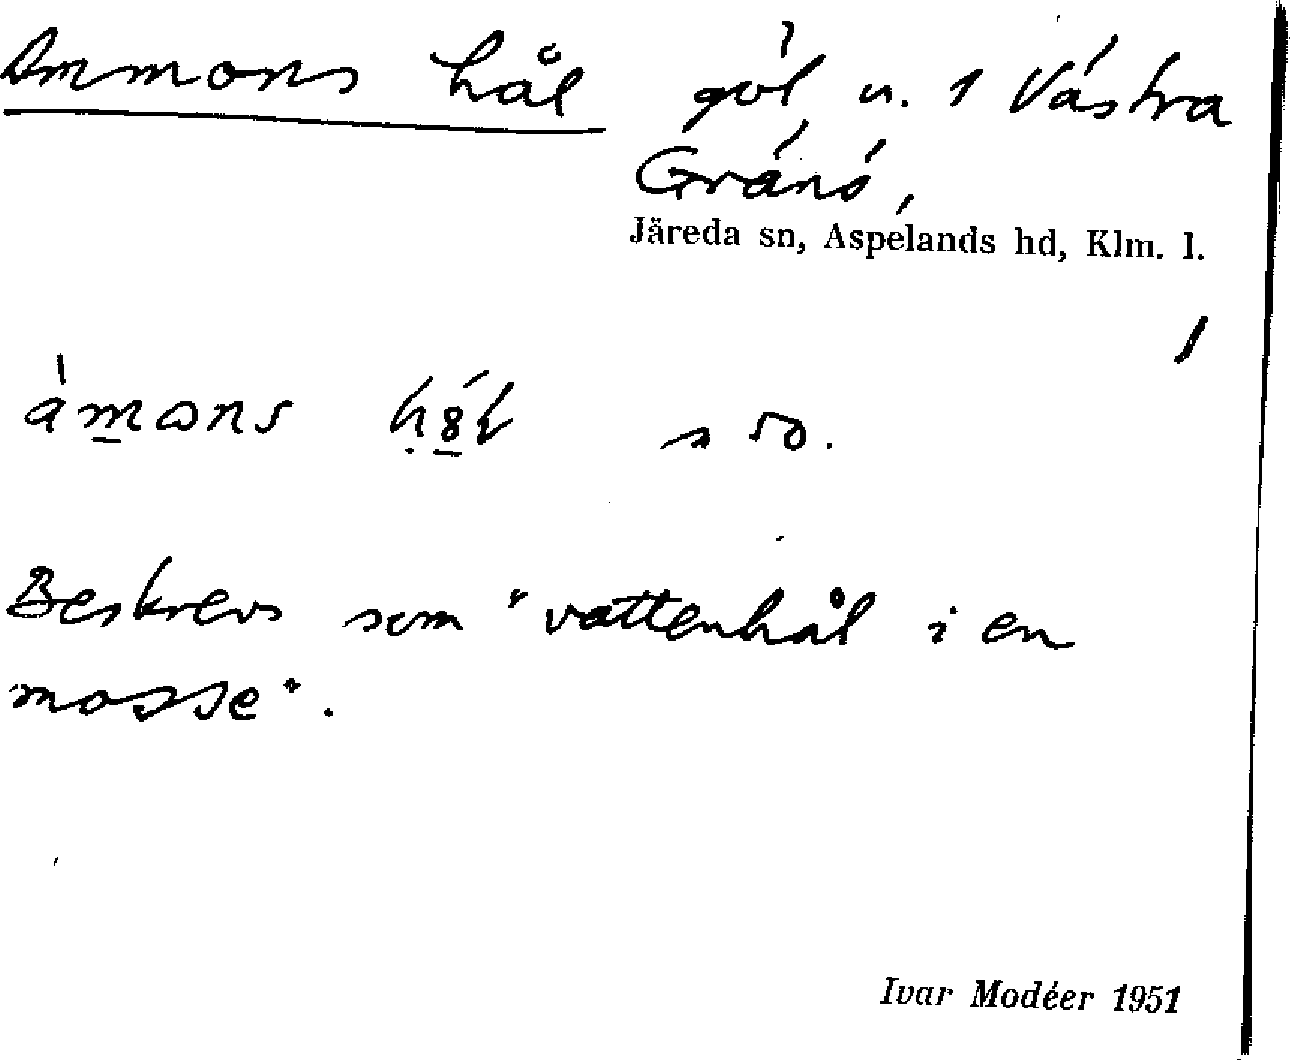 Ammons hål göl n. 1 Västra
Gränö,
Järeda sn, Aspelands hd, Klm. l.
s so.
Beskrevs som "vattenhål i en
mosse".
Ivar Modéer 1951